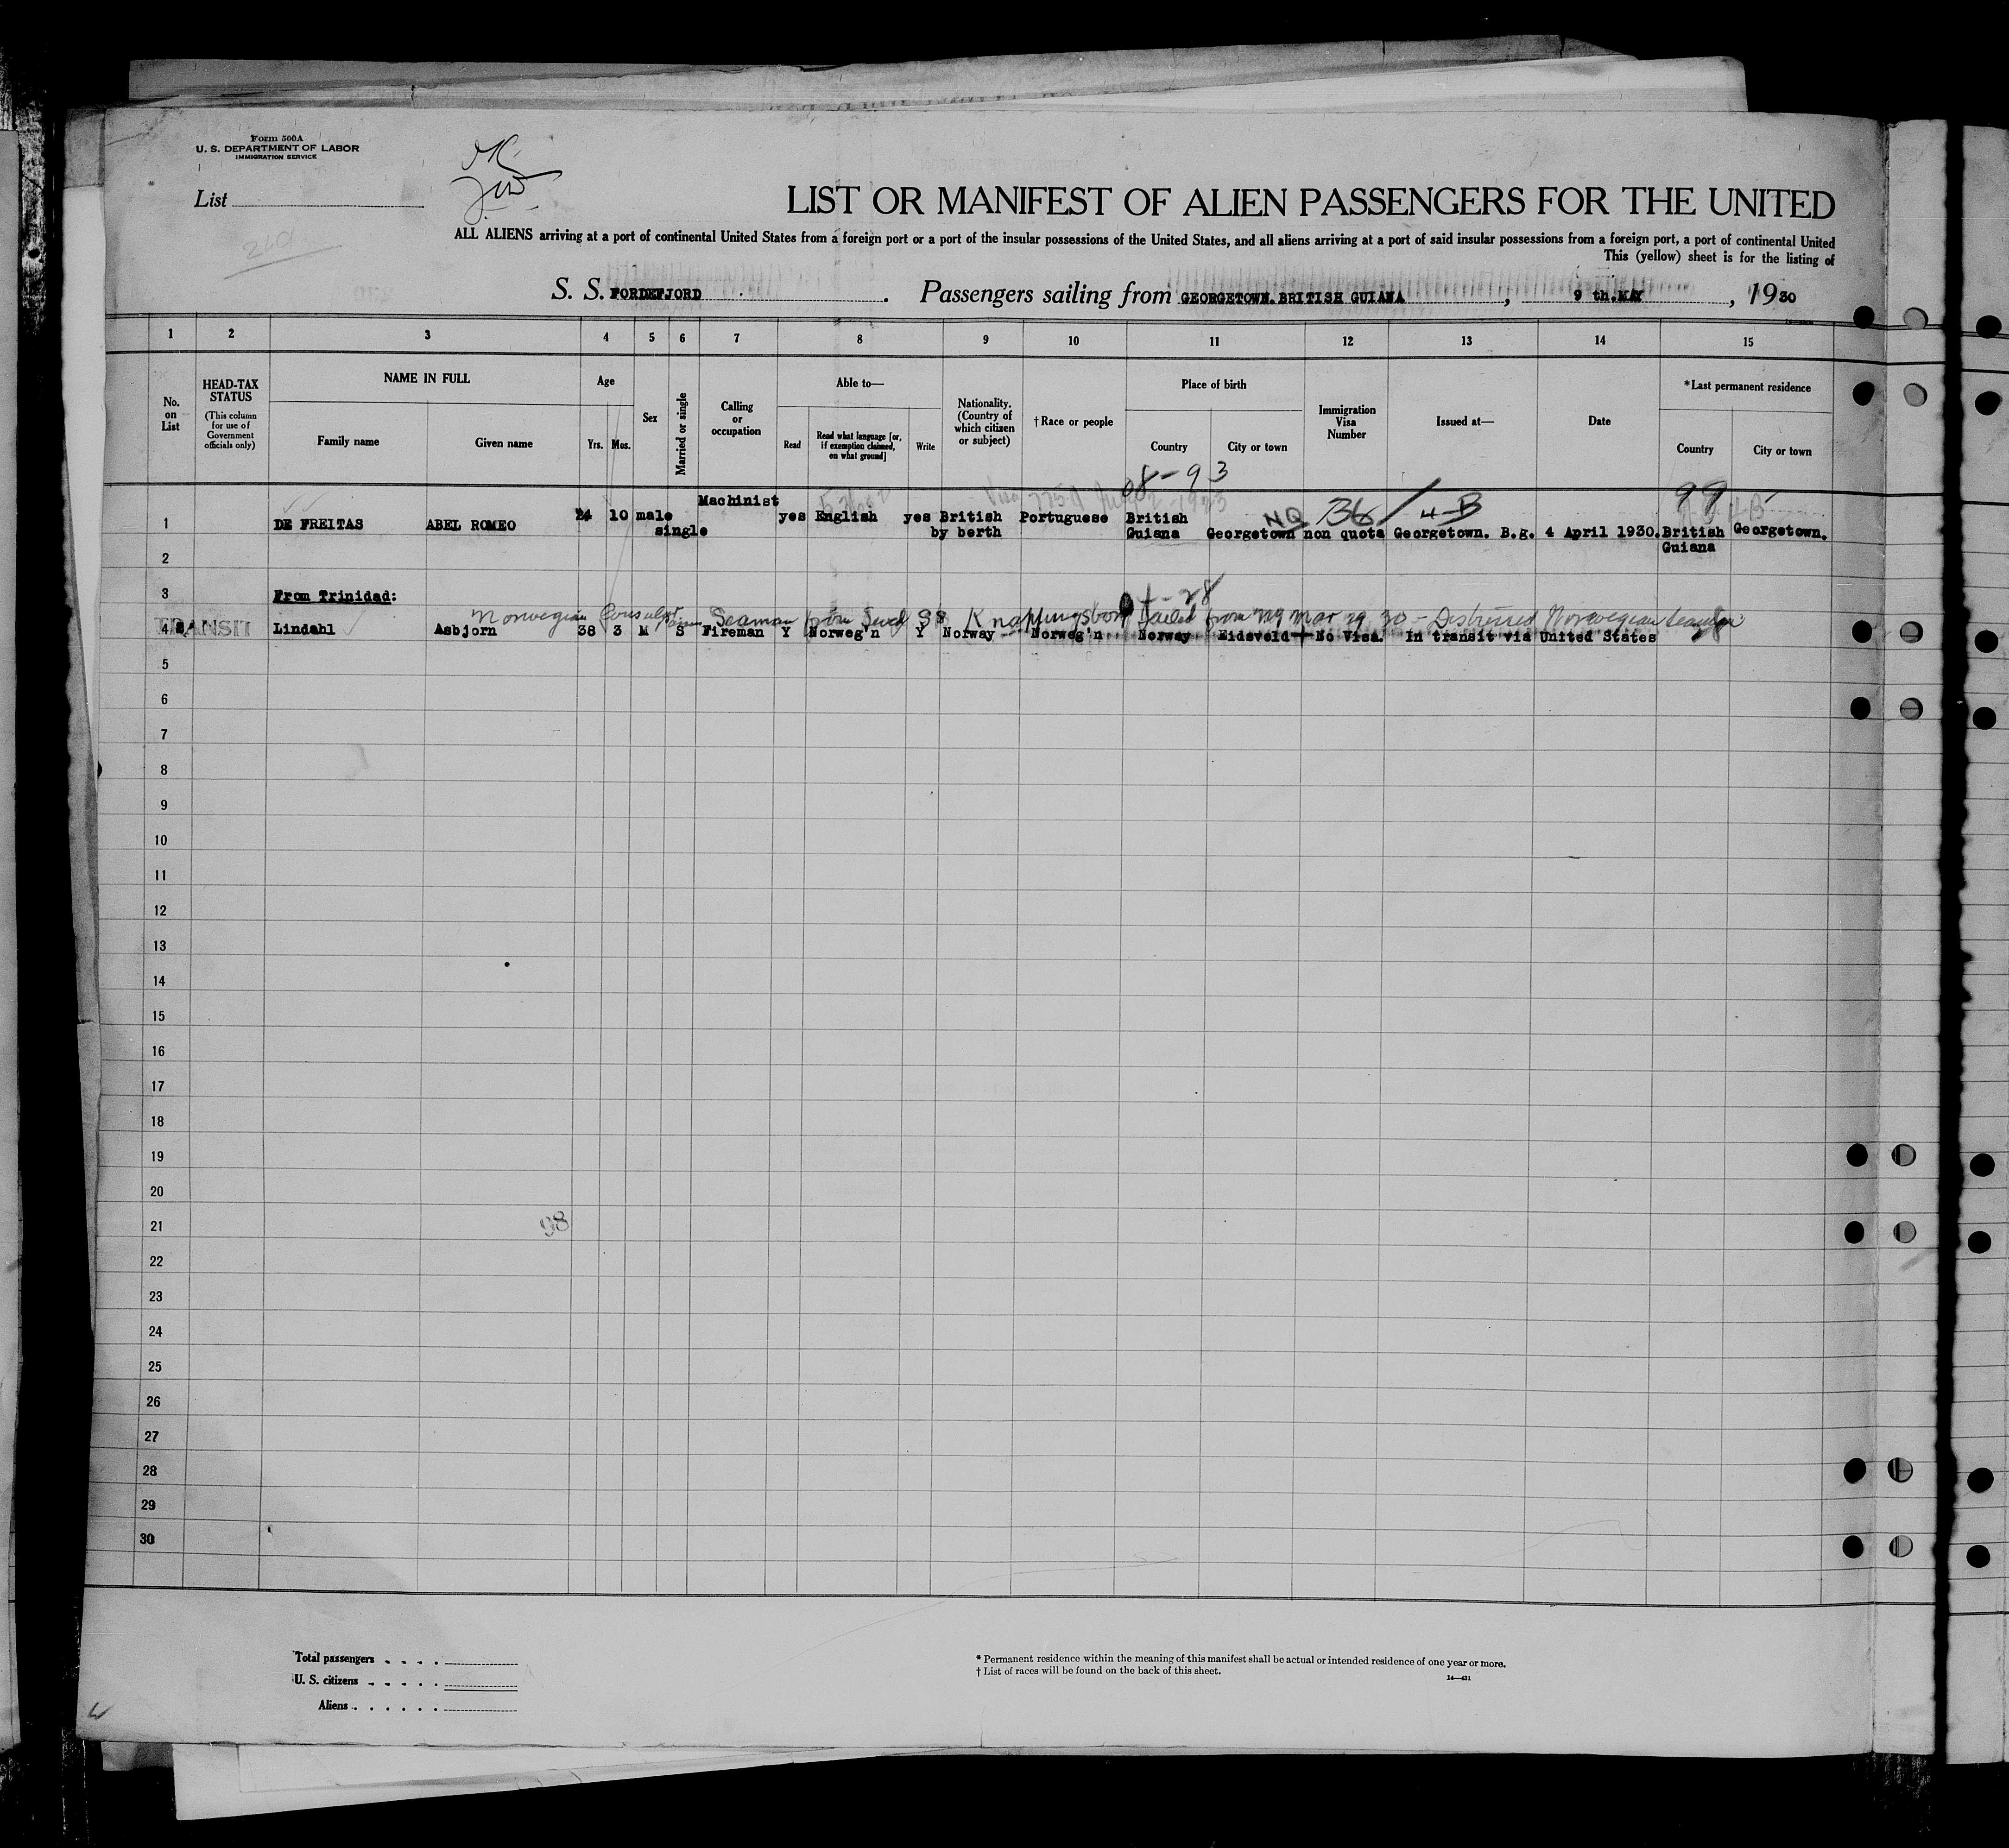 Form 500A
U. S. DEPARTMENT OF LABOR
IMMIGRATION SERVICE
OK
List
LIST OR MANIFEST OF ALIEN PASSENGERS FOR THE UNITED
ALL ALIENS arriving at a port of continental United States from a foreign port or a port of the insular possessions of the United States, and all aliens arriving at a port of said insular possessions from a foreign port, a port of continental United
This (yellow) sheet is for the listing of
S. S. FORDEFJORD. Passengers sailing from GEORGETOWN.BRITISH GUIANA, 9 th.MAY, 1930
1 2 3 4 5 6 7 8 9 10 11 12 13 14 15
No. on List
HEAD-TAX STATUS
(This column for use of Government officials only)
NAME IN FULL
Family name Given name
Age
Yrs. Mos.
Sex
Married or single
Calling or occupation
Able to—
Read
Read what language [or, if exemption claimed, on what ground]
Write
Nationality. (Country of which citizen or subject)
†Race or people
Place of birth
Country City or town
Immigration Visa Number
Issued at—
Date
*Last permanent residence
Country City or town
08-93
99
1 DE FREITAS ABEL ROMEO 24 10 male single Machinist yes English yes British by berth Portuguese British Guiana Georgetown NQ 736 non quota 4-B Georgetown. B.g. 4 April 1930. British Guiana Georgetown.
2
3 From Trinidad:
Norwegian Consular Seaman from Swed SS Knappingsborg Sailed from NY Mar 29 30 - Distressed Norwegian Seaman
4 TRANSIT Lindahl Asbjorn 38 3 M S Fireman Y Norweg'n Y Norway Norweg'n Norway Eidsveld No Visa. In transit via United States
5
6
7
8
9
10
11
12
13
14
15
16
17
18
19
20
21
98
22
23
24
25
26
27
28
29
30
Total passengers . . . .
U. S. citizens . . . . .
Aliens . . . . . .
* Permanent residence within the meaning of this manifest shall be actual or intended residence of one year or more.
† List of races will be found on the back of this sheet.
14—421